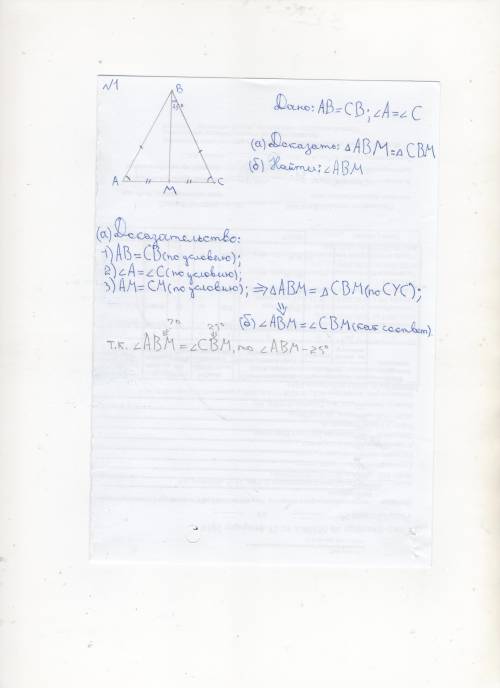 №1
B
25°
A
M
C
Дано: AB=CB; ∠A=∠C
(а) Доказать: △ABM=△CBM
(б) Найти: ∠ABM
(а) Доказательство:
1) AB=CB (по условию);
2) ∠A=∠C (по условию);
3) AM=CM (по условию); ⇒ △ABM = △CBM (по СУС);
⇓
(б) ∠ABM=∠CBM (как соответ).
25°
т.к. ∠ABM=∠CBM, то ∠ABM-25°